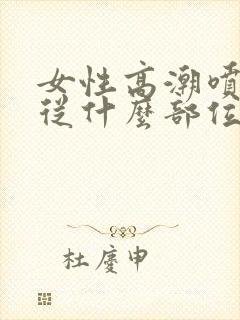 女性高潮噴
從什麼部位
杜慶申